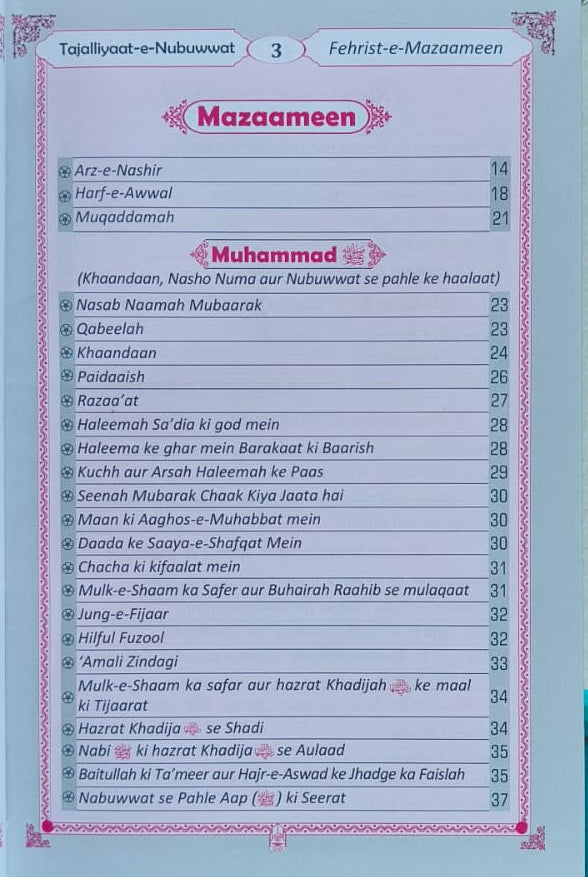 Tajalliyaat-e-Nubuwwat 3 Fehrist-e-Mazaameen
Mazaameen
Arz-e-Nashir 14
Harf-e-Awwal 18
Muqaddamah 21
Muhammad ﷺ
(Khaandaan, Nasho Numa aur Nubuwwat se pahle ke haalaat)
Nasab Naamah Mubaarak 23
Qabeelah 23
Khaandaan 24
Paidaaish 26
Razaa’at 27
Haleemah Sa’dia ki god mein 28
Haleema ke ghar mein Barakaat ki Baarish 28
Kuchh aur Arsah Haleemah ke Paas 29
Seenah Mubarak Chaak Kiya Jaata hai 30
Maan ki Aaghos-e-Muhabbat mein 30
Daada ke Saaya-e-Shafqat Mein 30
Chacha ki kifaalat mein 31
Mulk-e-Shaam ka Safer aur Buhairah Raahib se mulaqaat 31
Jung-e-Fijaar 32
Hilful Fuzool 32
‘Amali Zindagi 33
Mulk-e-Shaam ka safar aur hazrat Khadijah ke maal
ki Tijaarat 34
Hazrat Khadija se Shadi 34
Nabi ﷺ ki hazrat Khadija se Aulaad 35
Baitullah ki Ta’meer aur Hajr-e-Aswad ke Jhadge ka Faislah 35
Nabuwwat se Pahle Aap (ﷺ) ki Seerat 37